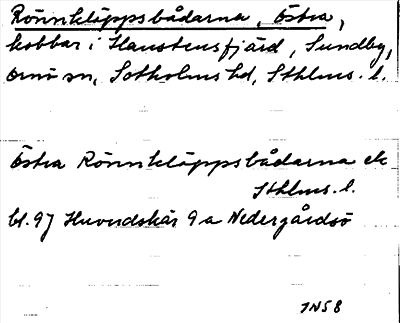 Rönnkläppsbådarna, Östra,
kobbar i Hanstensfjärd, Sundby,
Ornö sn, Sotholms hd, Sthlms. l.
Östra Rönnkläppsbådarna ek
Sthlms. l.
bl. 97 Huvudskär 9 a Nedergårdsö
1958